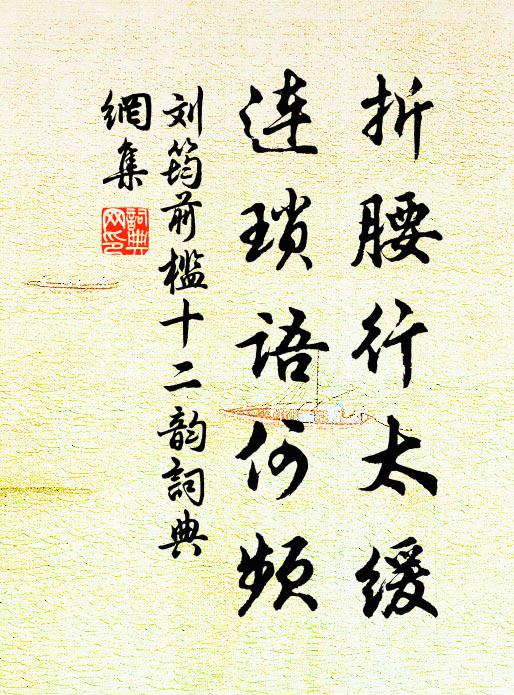 折腰行太缓
连琐语何频
刘筠前槛十二韵詞典
網集
詞典網印